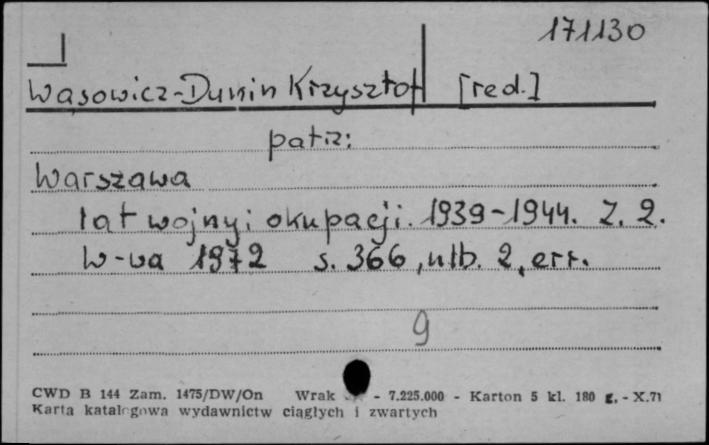 171130
Wąsowicz-Dunin Krzysztof [red.]
patrz:
Warszawa
lat wojny i okupacji. 1939-1944. Z. 2.
W-wa 1972 s. 366, nlb. 2, err.
9
CWD B 144 Zam. 1475/DW/On Wrak - 7.225.000 - Karton 5 kl. 180 g. - X.71
Karta katalogowa wydawnictw ciągłych i zwartych